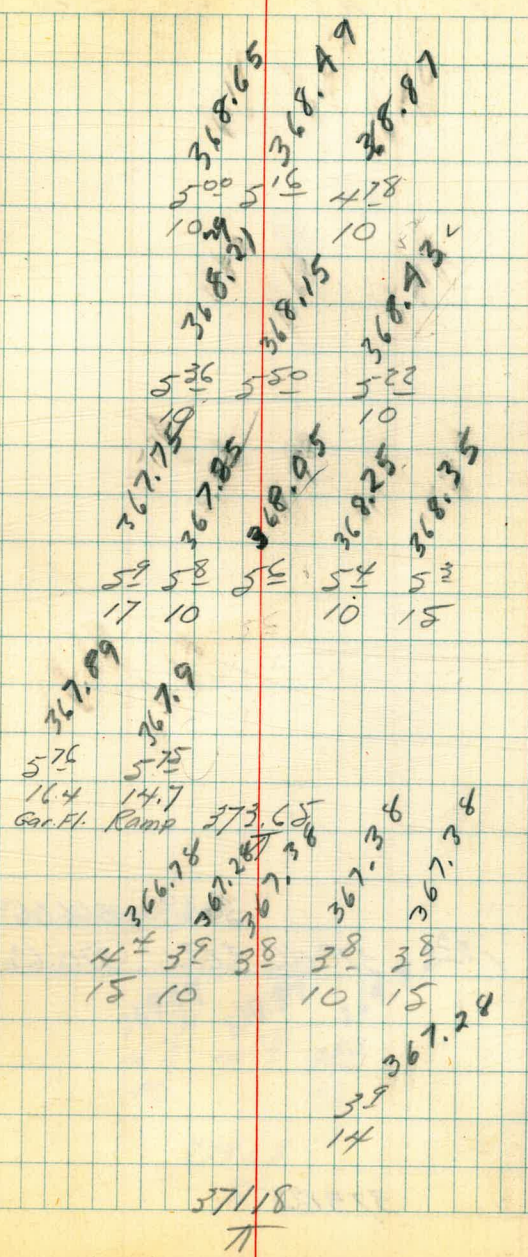 368.65 368.49 368.87
5 00 5 16 4 78
10 10
368.29 368.15 368.43
5 36 5 50 5 22
10 10
367.75 367.85 368.05 368.25 368.35
5 9 5 8 5 6 5 4 5 3
17 10 10 15
367.89 367.9
5 76 5 75
16.4 14.7
Gar.Fl. Ramp 373.65
366.78 367.28 367.38 367.38 367.38
4 4 3 9 3 8 3 8 3 8
15 10 10 15
367.28
3 9
14
371.18